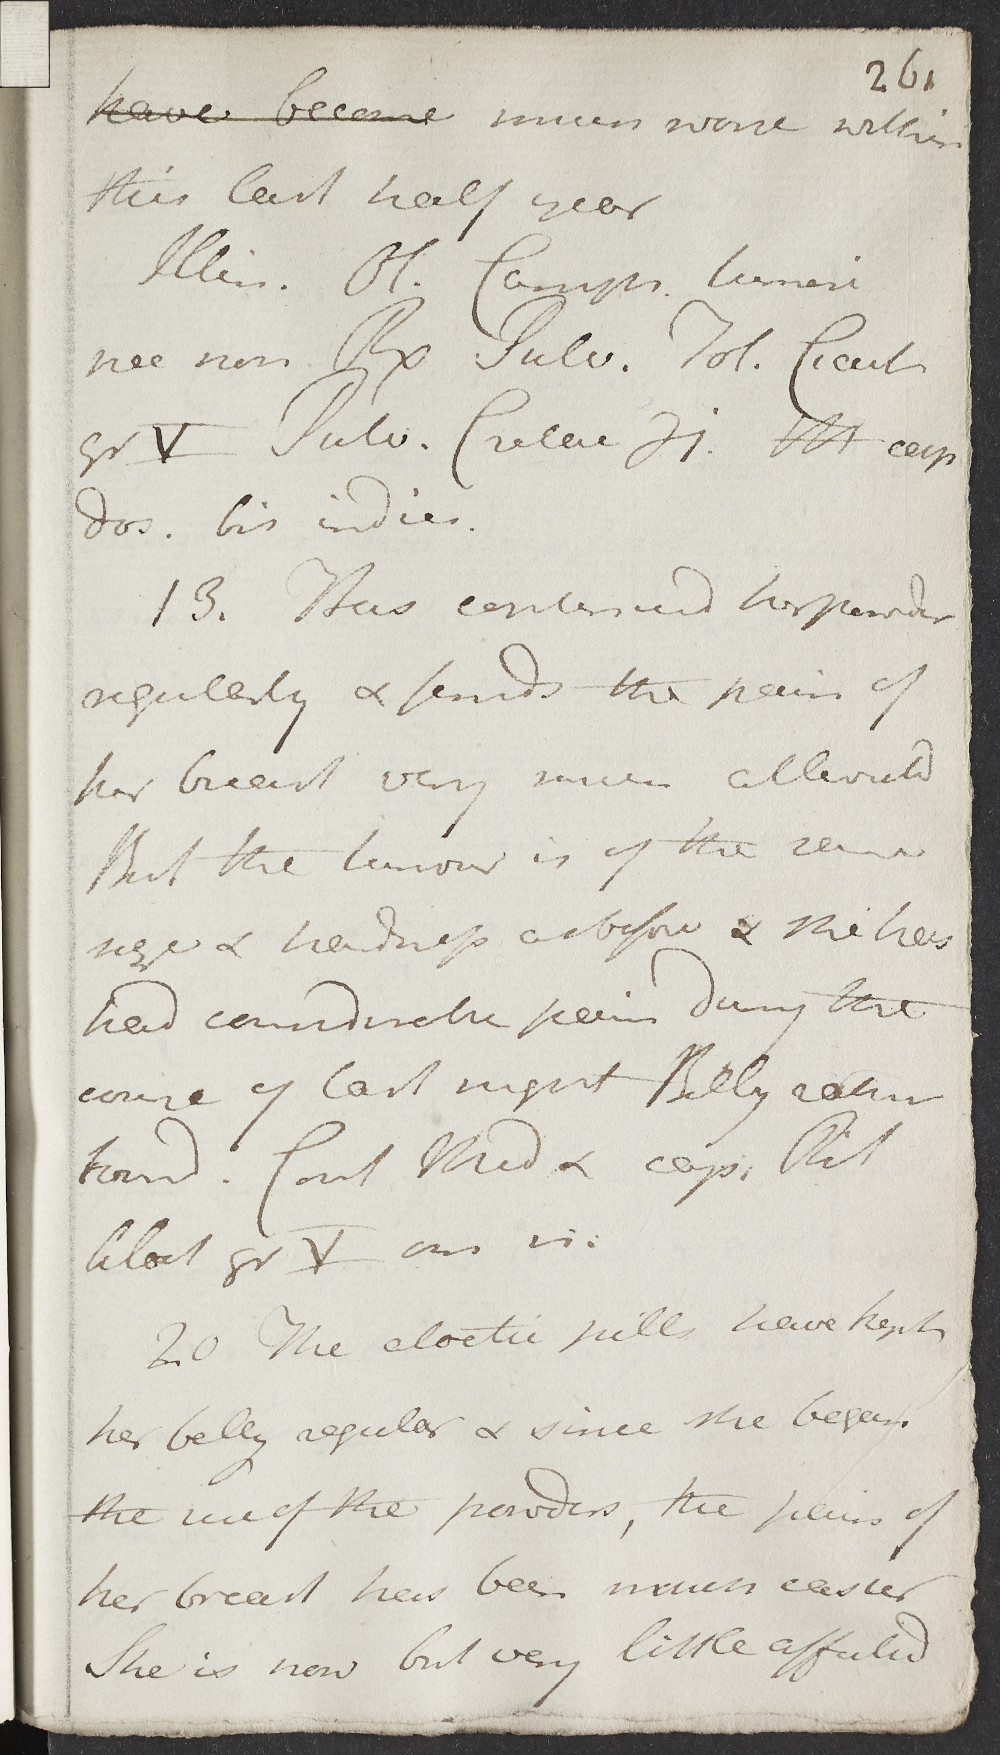 261
have become much worse within
this last half year
Illin. Ol. Camph. tumori
nec non Rx Pulv. Fol. Cicut
gr V Pulv. Cretae ʒj. M cap
dos. bis indies.
13. Has continued her powder
regularly & finds the pain of
her breast very much alleviated
But the tumour is of the same
size & hardness as before & she has
had considerable pain during the
course of last night Belly rather
bound. Cont Med & cap. Pil
Aloet gr V om n.
20 The aloetic pills have kept
her belly regular & since she began
the use of the powders, the pain of
her breast has been much easier
She is now but very little affected